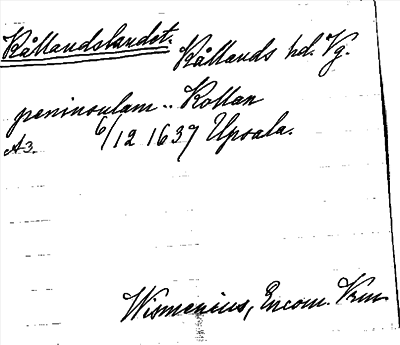 Kållandslandet.
Kållands hd. Vg.
peninsulam .. Kollan
A3. 6/12 1637 Upsala.
Wismenius, Encom. Vrm